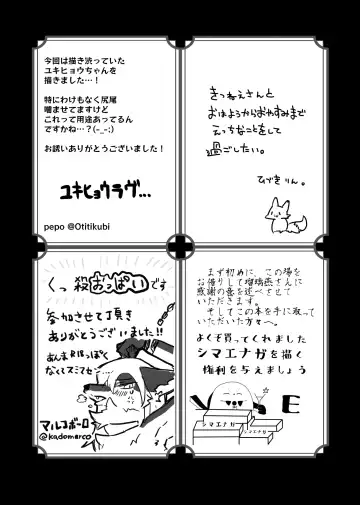 今回は描き渋っていた
ユキヒョウちゃんを
描きました…！
特にわけもなく尻尾
噛ませてますけど
これって用途あってるん
ですかね…？(-_-;)
お誘いありがとうございました！
ユキヒョウラヴ…
pepo @Otitikubi
きつねえさんと
おはようからおやすみまで
えっちなことをして
過ごしたい。
ひづきりん。
くっ殺おっぱいです
参加させて頂き
ありがとうございました!!
あんまR18っぽく
なくてスミマセ…
マルコボーロ
@kadomarco
まず初めに、この場を
お借りして瑠璃燕さんに
感謝の意を述べさせて
いただきます。
そしてこの本を手に取って
いただいた方々へ。
よくぞ買ってくれました
シマエナガを描く
権利を与えましょう
シマエナガ
シマエナガ
E